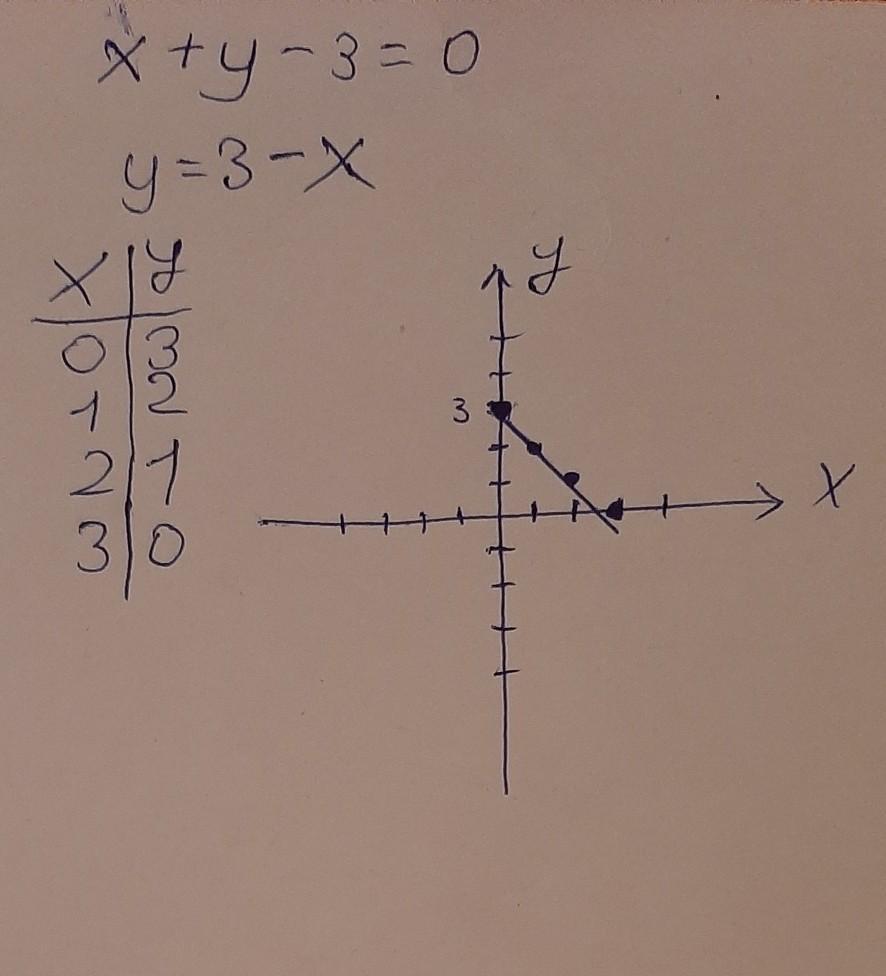 x + y - 3 = 0
y = 3 - x
x y
0 3
1 2
2 1
3 0
y
3
x